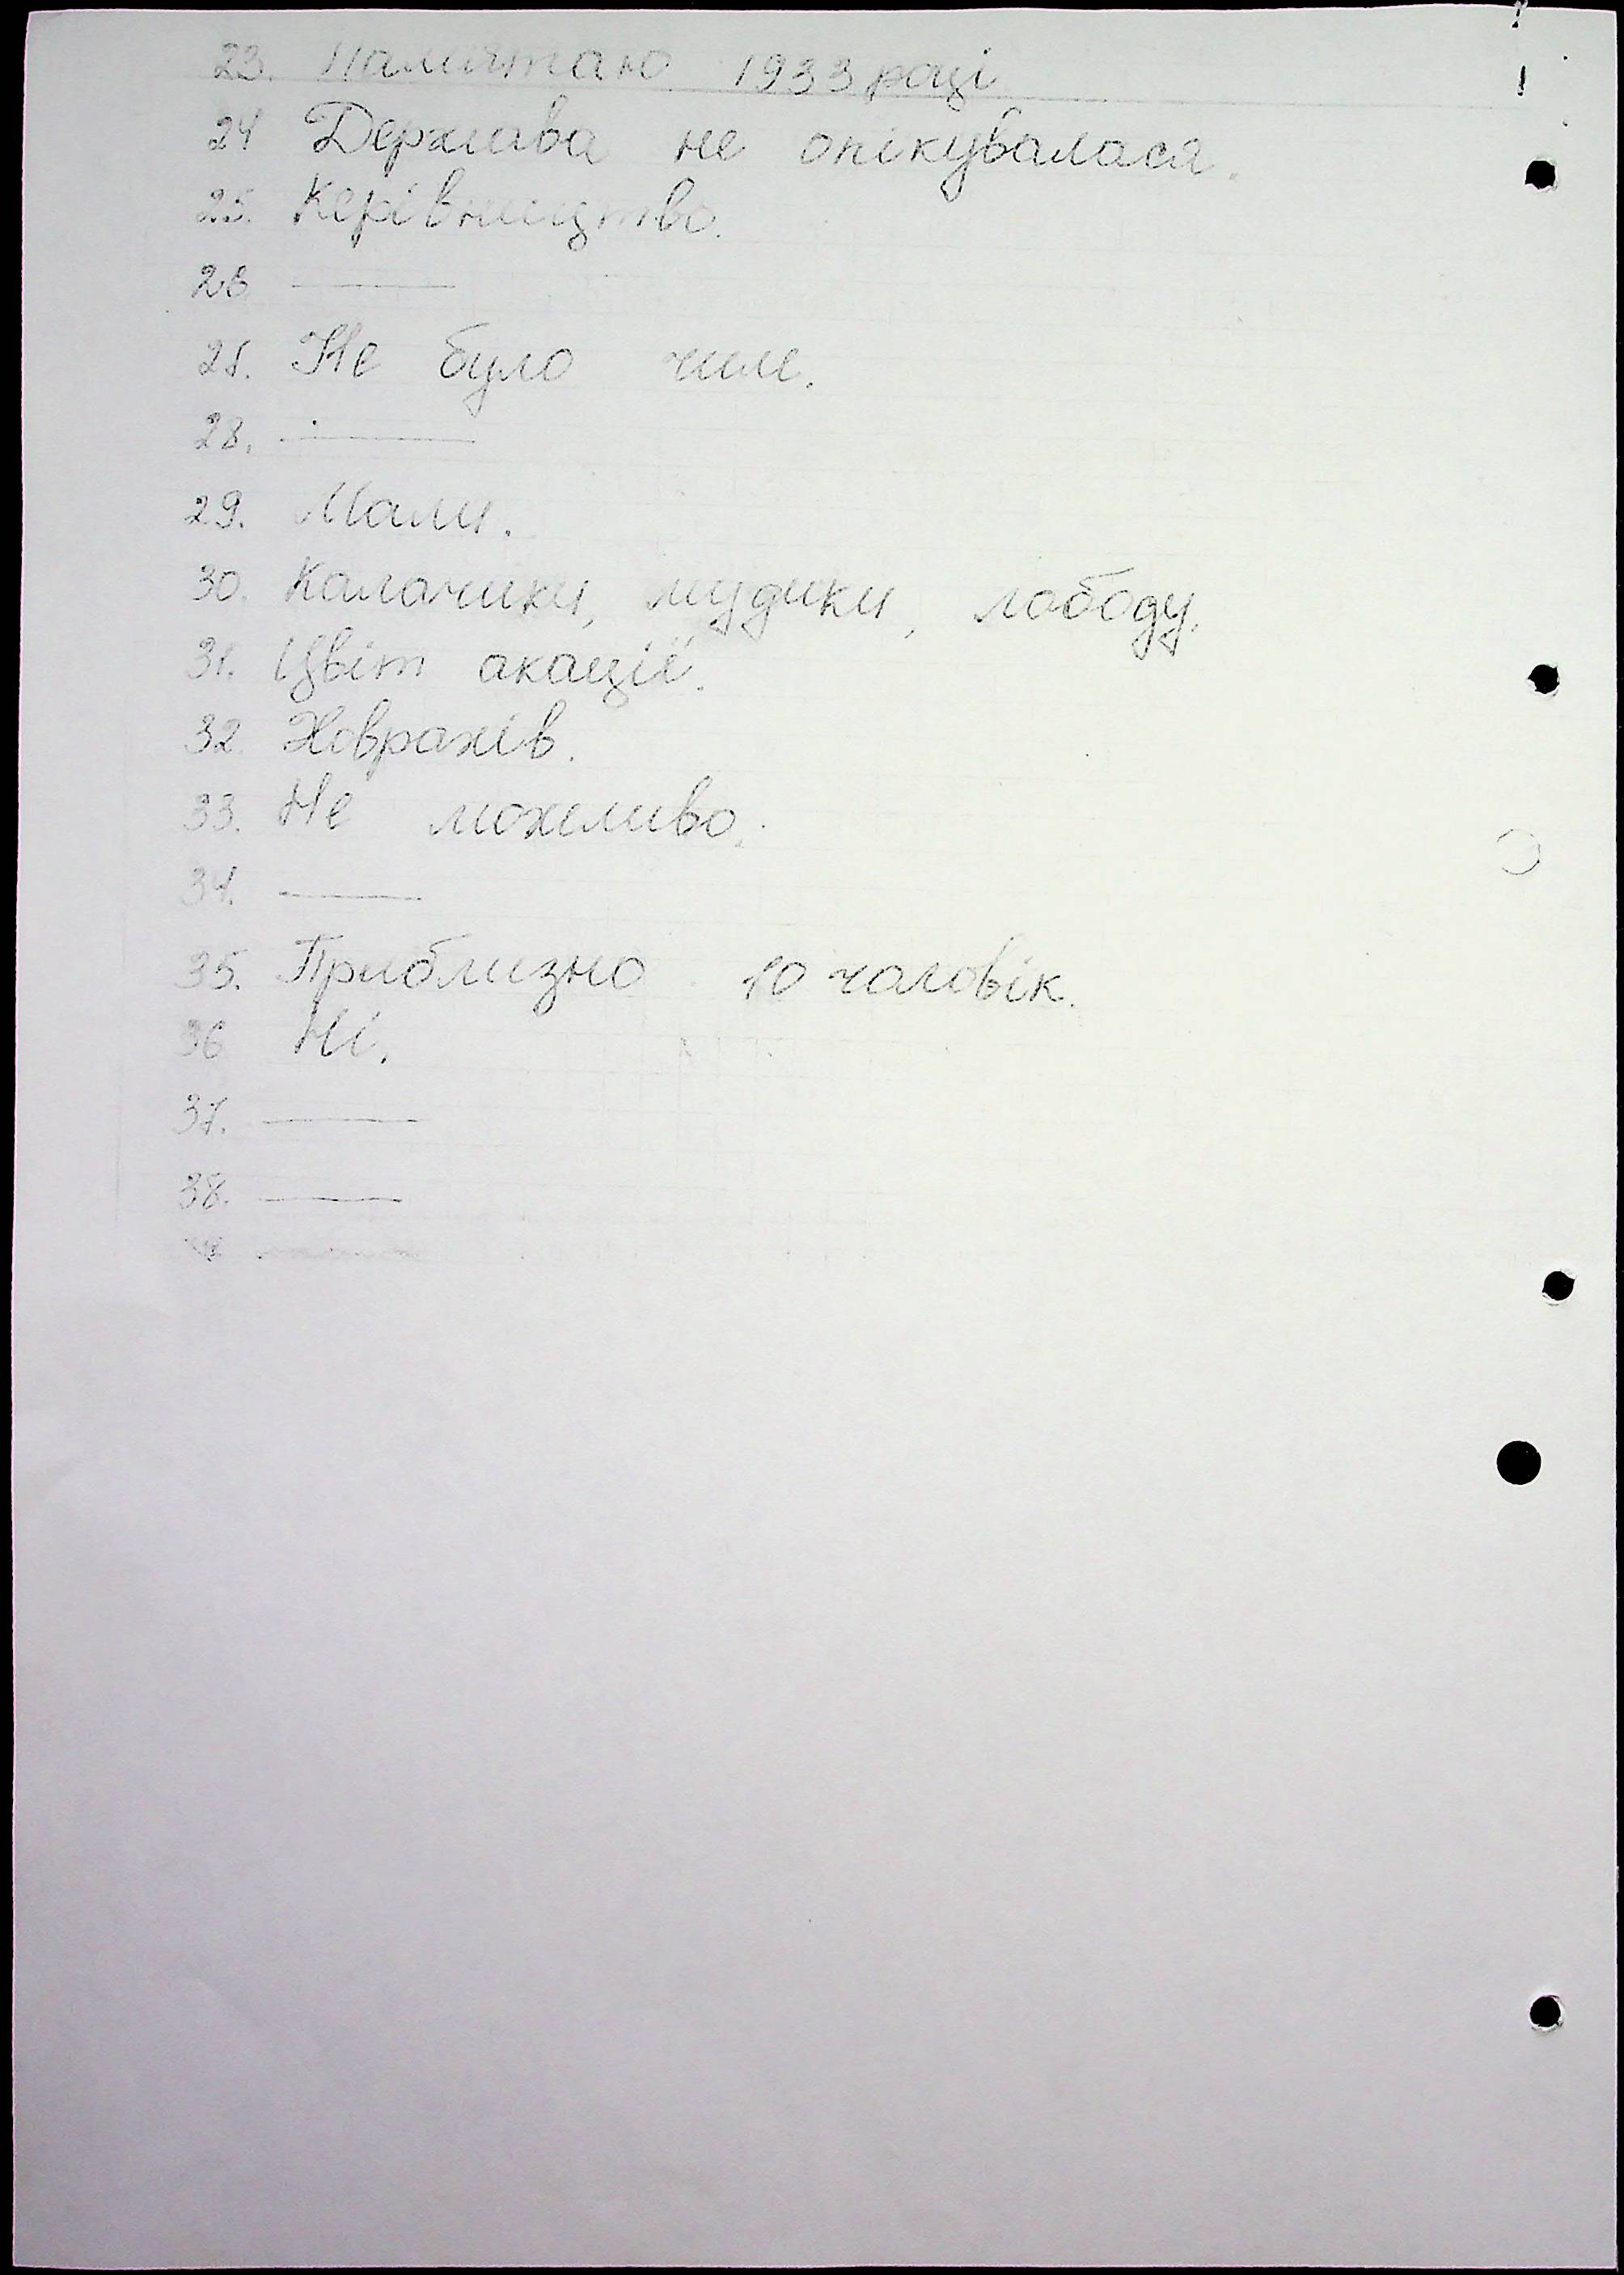 23. Памʼятаю 1933 році
24 Держава не опікувалася.
25. Керівництво.
26 ———
27. Не було чим.
28. ———
29. Мали.
30. Калачики, мудики, лободу.
31. Цвіт акації.
32. Ховрахів.
33. Не можливо.
34. ———
35. Приблизно 10 чоловік.
36 Ні.
37. ———
38. ———